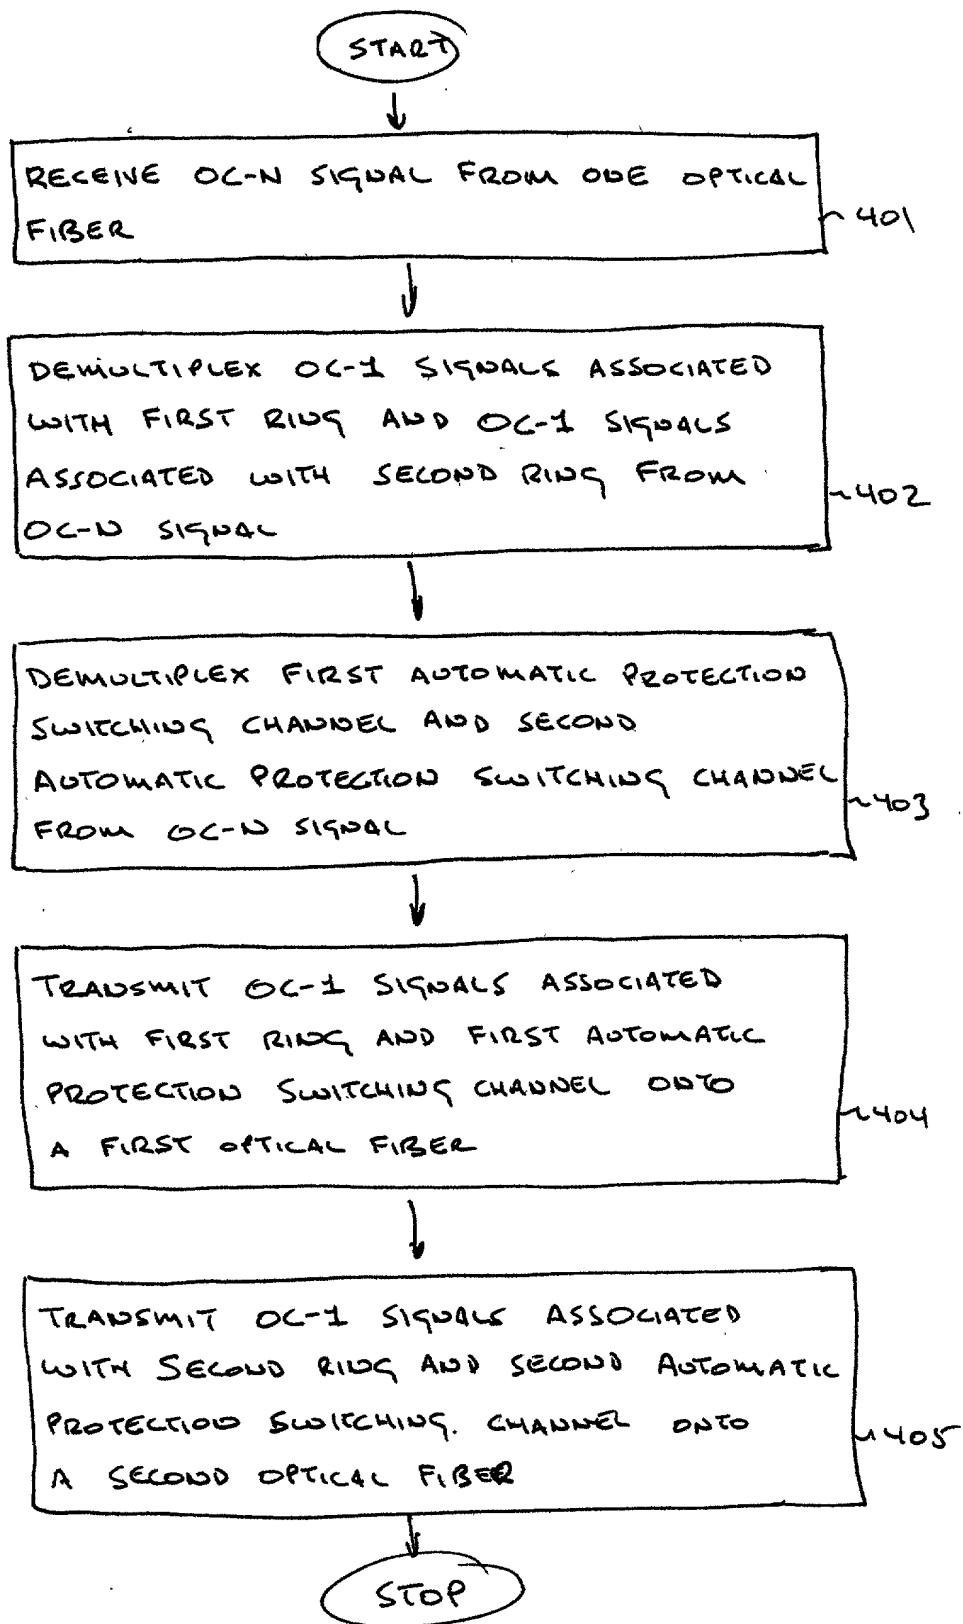 START
RECEIVE OC-N SIGNAL FROM ONE OPTICAL
FIBER
401
DEMULTIPLEX OC-1 SIGNALS ASSOCIATED
WITH FIRST RING AND OC-1 SIGNALS
ASSOCIATED WITH SECOND RING FROM
OC-N SIGNAL
402
DEMULTIPLEX FIRST AUTOMATIC PROTECTION
SWITCHING CHANNEL AND SECOND
AUTOMATIC PROTECTION SWITCHING CHANNEL
FROM OC-N SIGNAL
403
TRANSMIT OC-1 SIGNALS ASSOCIATED
WITH FIRST RING AND FIRST AUTOMATIC
PROTECTION SWITCHING CHANNEL ONTO
A FIRST OPTICAL FIBER
404
TRANSMIT OC-1 SIGNALS ASSOCIATED
WITH SECOND RING AND SECOND AUTOMATIC
PROTECTION SWITCHING. CHANNEL ONTO
A SECOND OPTICAL FIBER
405
STOP